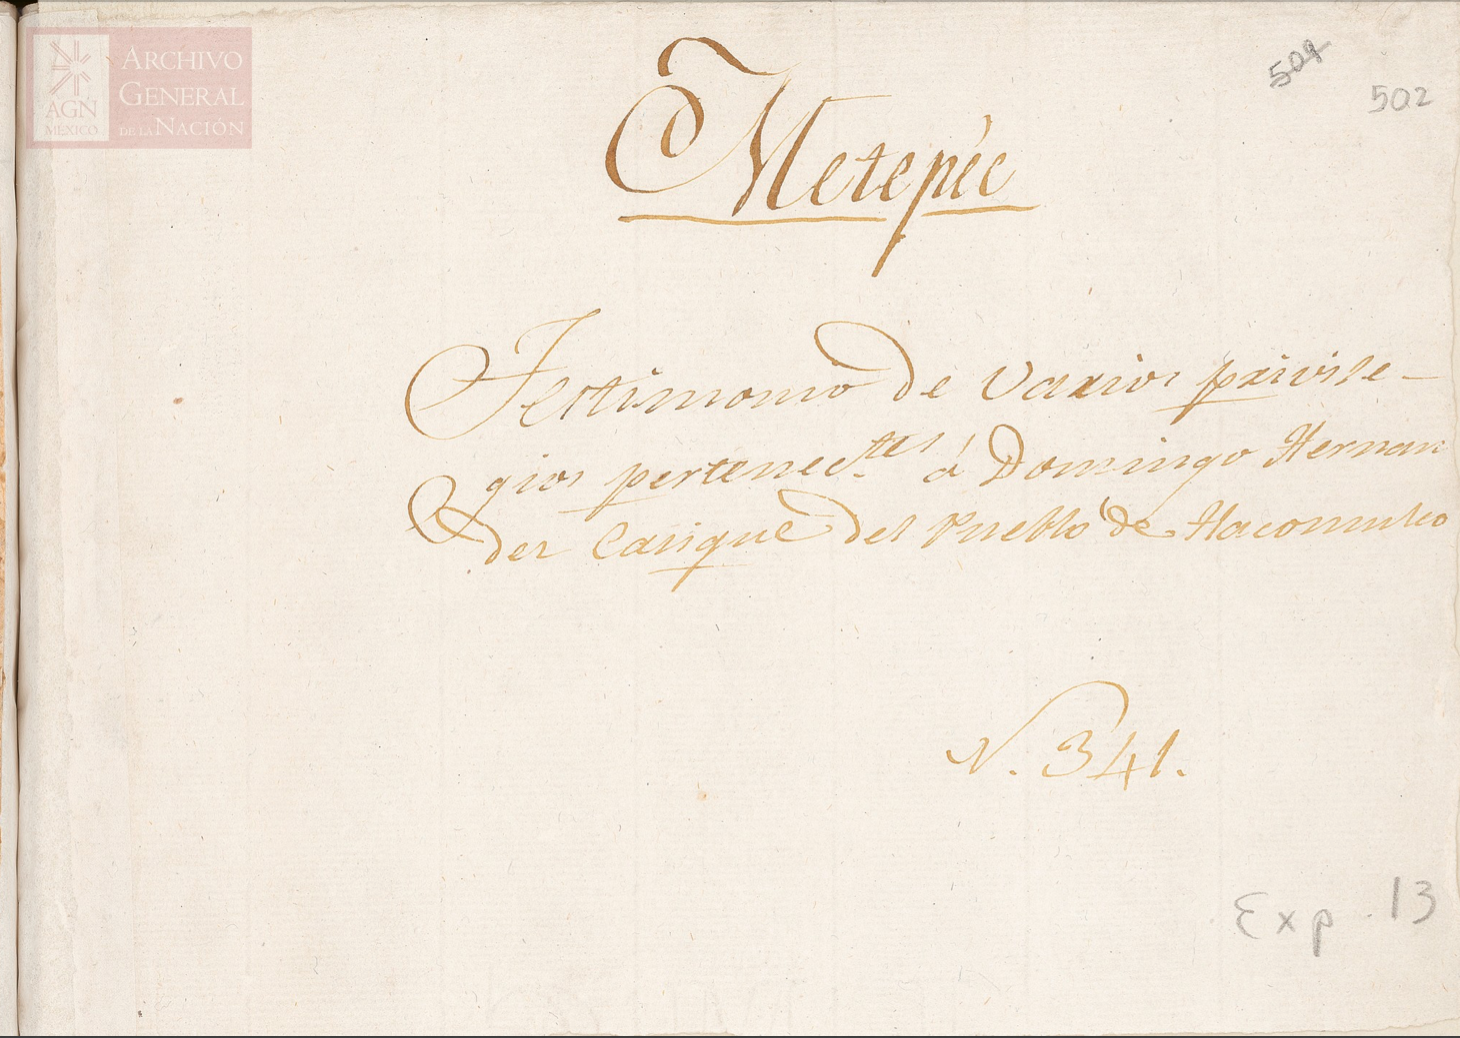 ARCHIVO
GENERAL
DE LA NACIÓN
AGN
MÉXICO
504
502
Metepéc
Testimonio de varios privile-
gios pertenec.tes á Domingo Hernan
dez Casique del Pueblo de Tlacomulco
N. 341.
Exp. 13